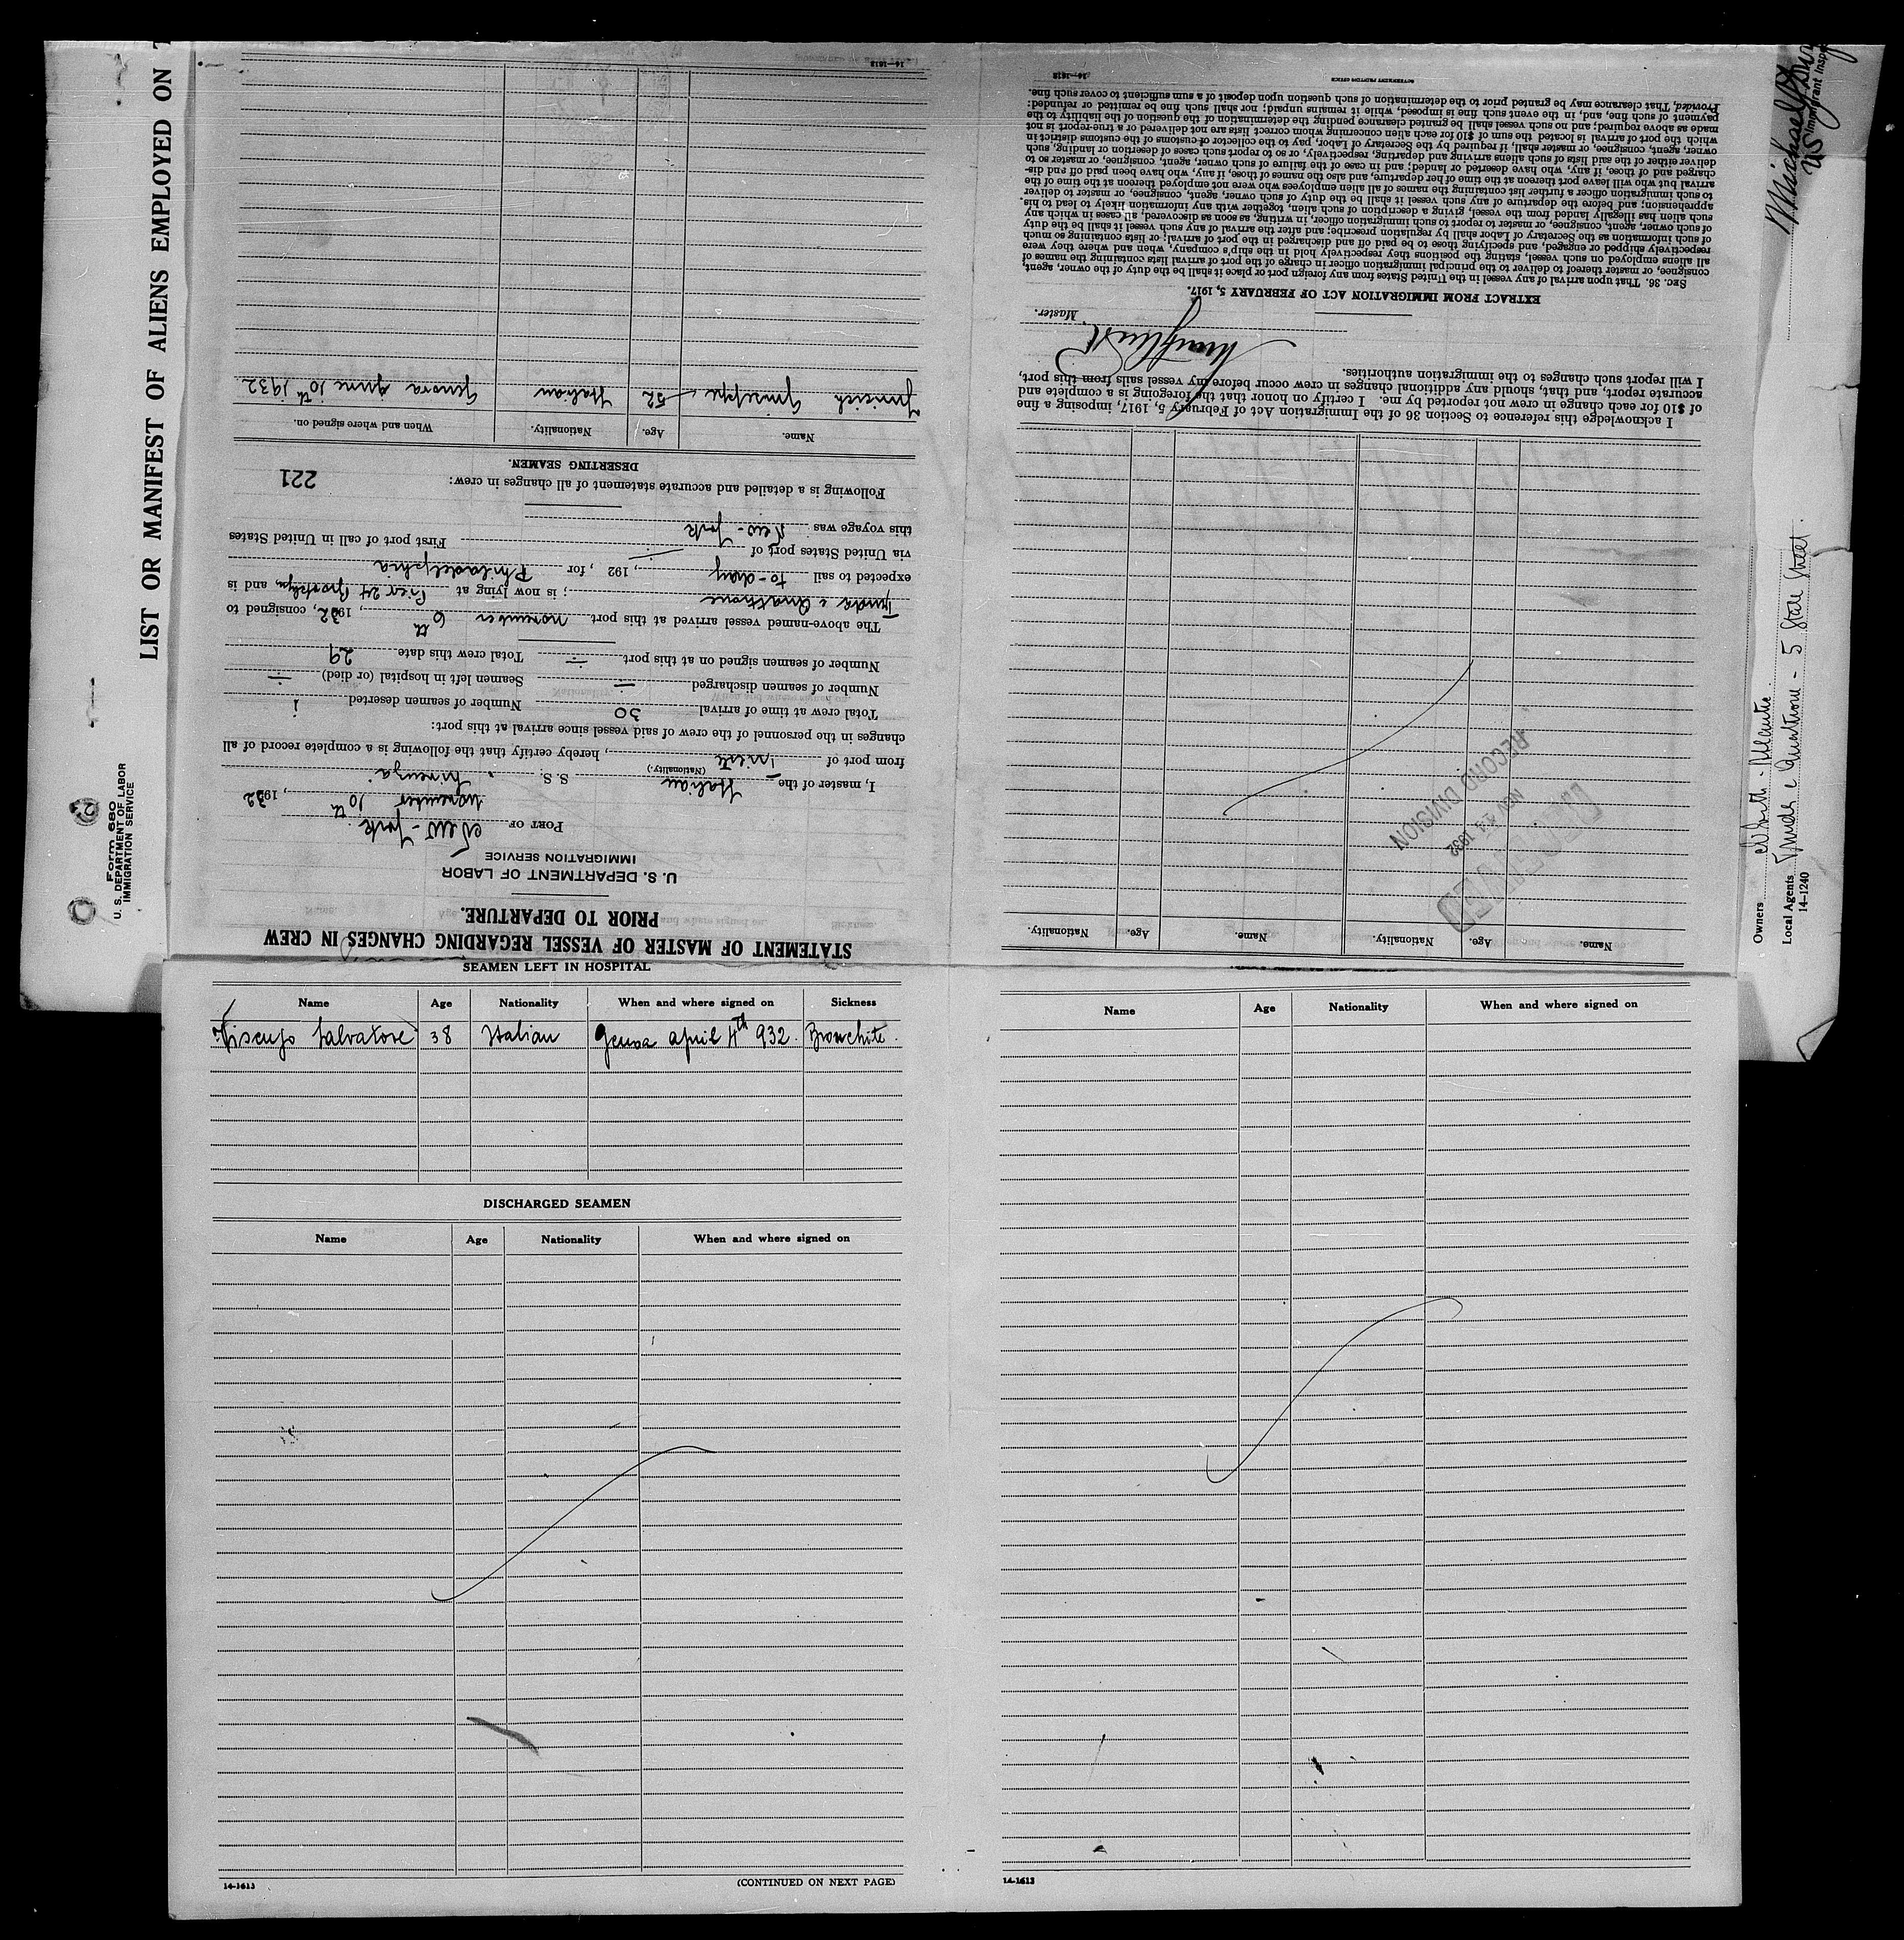 LIST OR MANIFEST OF ALIENS EMPLOYED ON
Form 680
U. S. DEPARTMENT OF LABOR
IMMIGRATION SERVICE
STATEMENT OF MASTER OF VESSEL REGARDING CHANGES IN CREW
PRIOR TO DEPARTURE.
U. S. DEPARTMENT OF LABOR
IMMIGRATION SERVICE
PORT OF New-York
November 10th, 1932
I, master of the Italian S. S.
(Nationality.)
from port of Trieste, hereby certify that the following is a complete record of all
changes in the personnel of the crew of said vessel since arrival at this port:
Total crew at time of arrival 30 Number of seamen deserted 1
Number of seamen discharged ÷ Seamen left in hospital (or died) ÷
Number of seamen signed on at this port ÷ Total crew this date 29
The above-named vessel arrived at this port November 6th, 1932, consigned to
; is now lying at Pier 24 Brooklyn, and is
expected to sail to-day, 192 , for Philadelphia
via United States port of ÷ First port of call in United States
this voyage was New-York
Following is a detailed and accurate statement of all changes in crew: 221
DESERTING SEAMEN.
Name. Age. Nationality. When and where signed on.
Giuseppe 52 Italian Genova June 10th 1932
14—1613
Name. Age. Nationality. Name. Age. Nationality.
RECEIVED
NOV 14 1932
RECORD DIVISION
I acknowledge this reference to Section 36 of the Immigration Act of February 5, 1917, imposing a fine
of $10 for each change in crew not reported by me. I certify on honor that the foregoing is a complete and
accurate report, and that, should any additional changes in crew occur before my vessel sails from this port,
I will report such changes to the immigration authorities.
Master.
EXTRACT FROM IMMIGRATION ACT OF FEBRUARY 5, 1917.
SEC. 36. That upon arrival of any vessel in the United States from any foreign port or place it shall be the duty of the owner, agent,
consignee, or master thereof to deliver to the principal immigration officer in charge of the port of arrival lists containing the names of
all aliens employed on such vessel, stating the positions they respectively hold in the ship's company, when and where they were
respectively shipped or engaged, and specifying those to be paid off and discharged in the port of arrival; or lists containing so much
of such information as the Secretary of Labor shall by regulation prescribe; and after the arrival of any such vessel it shall be the duty
of such owner, agent, consignee, or master to report to such immigration officer, in writing, as soon as discovered, all cases in which any
such alien has illegally landed from the vessel, giving a description of such alien, together with any information likely to lead to his
apprehension; and before the departure of any such vessel it shall be the duty of such owner, agent, consignee, or master to deliver
to such immigration officer a further list containing the names of all alien employees who were not employed thereon at the time of the
arrival but who will leave port thereon at the time of her departure, and also the names of those, if any, who have been paid off and dis-
charged and of those, if any, who have deserted or landed; and in case of the failure of such owner, agent, consignee, or master so to
deliver either of the said lists of such aliens arriving and departing, respectively, or so to report such cases of desertion or landing, such
owner, agent, consignee, or master shall, if required by the Secretary of Labor, pay to the collector of customs of the customs district in
which the port of arrival is located the sum of $10 for each alien concerning whom correct lists are not delivered or a true report is not
made as above required; and no such vessel shall be granted clearance pending the determination of the question of the liability to the
payment of such fine, and, in the event such fine is imposed, while it remains unpaid; nor shall such fine be remitted or refunded:
Provided, That clearance may be granted prior to the determination of such question upon deposit of a sum sufficient to cover such fine.
14—1613 GOVERNMENT PRINTING OFFICE
Michael
US Immigrant Insp
Owners
Local Agents - 5 State Street.
14-1240
SEAMEN LEFT IN HOSPITAL
Name Age Nationality When and where signed on Sickness
Salvatore 38 Italian Genoa april 4th 932. Bronchite.
DISCHARGED SEAMEN
Name Age Nationality When and where signed on
14-1613 (CONTINUED ON NEXT PAGE)
Name Age Nationality When and where signed on
14-1613